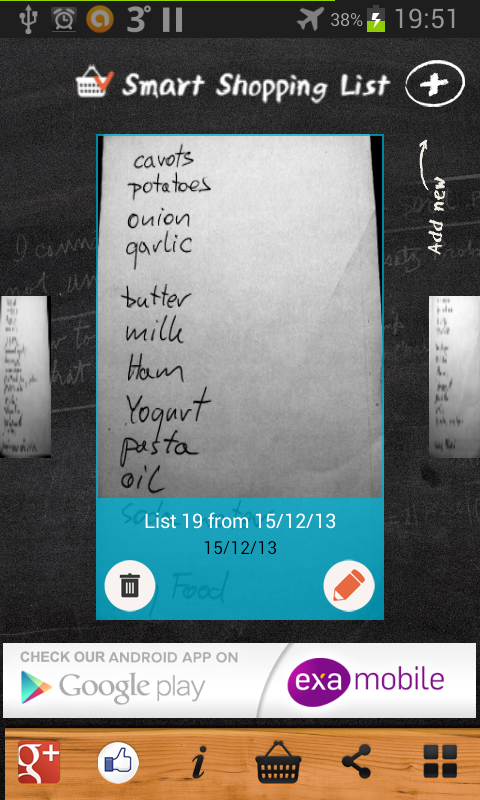 3° 38% 19:51
Smart Shopping List
Add new
cavots
potatoes
onion
garlic
butter
milk
Ham
Yogurt
pasta
oil
List 19 from 15/12/13
15/12/13
Food
CHECK OUR ANDROID APP ON
Google play
exa mobile
g+
i